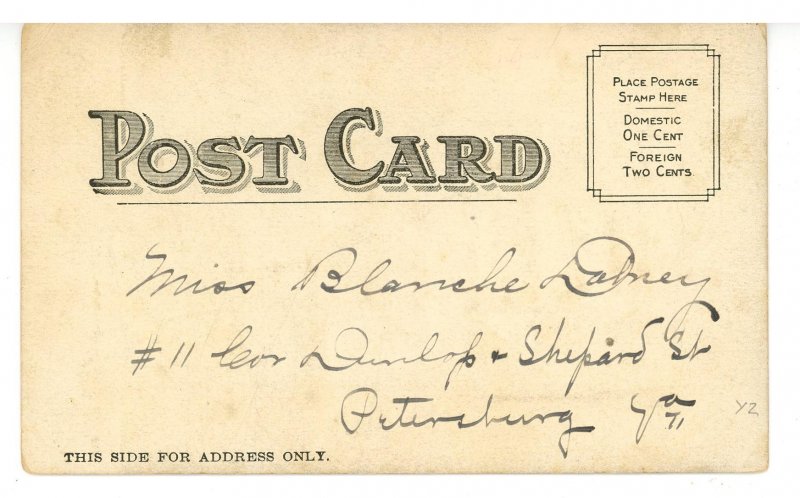 POST CARD
PLACE POSTAGE
STAMP HERE
DOMESTIC
ONE CENT
FOREIGN
TWO CENTS
Miss Blanche Dabney
#11 Cor Dunlop + Shepard St
Petersburg Va
YZ
THIS SIDE FOR ADDRESS ONLY.